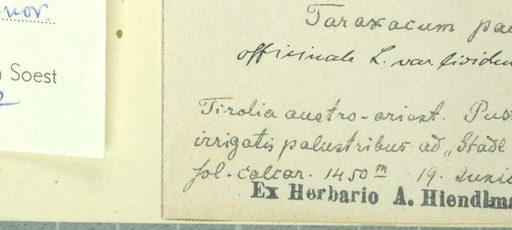 nov.
Soest
Taraxacum pa
officinale L. var. lividu
Tirolia austro-orient. Pust
irrigatis palustribus ad „Stadl
sol. calcar. 1450 m 19. Juni
Ex Herbario A. Hiendlma